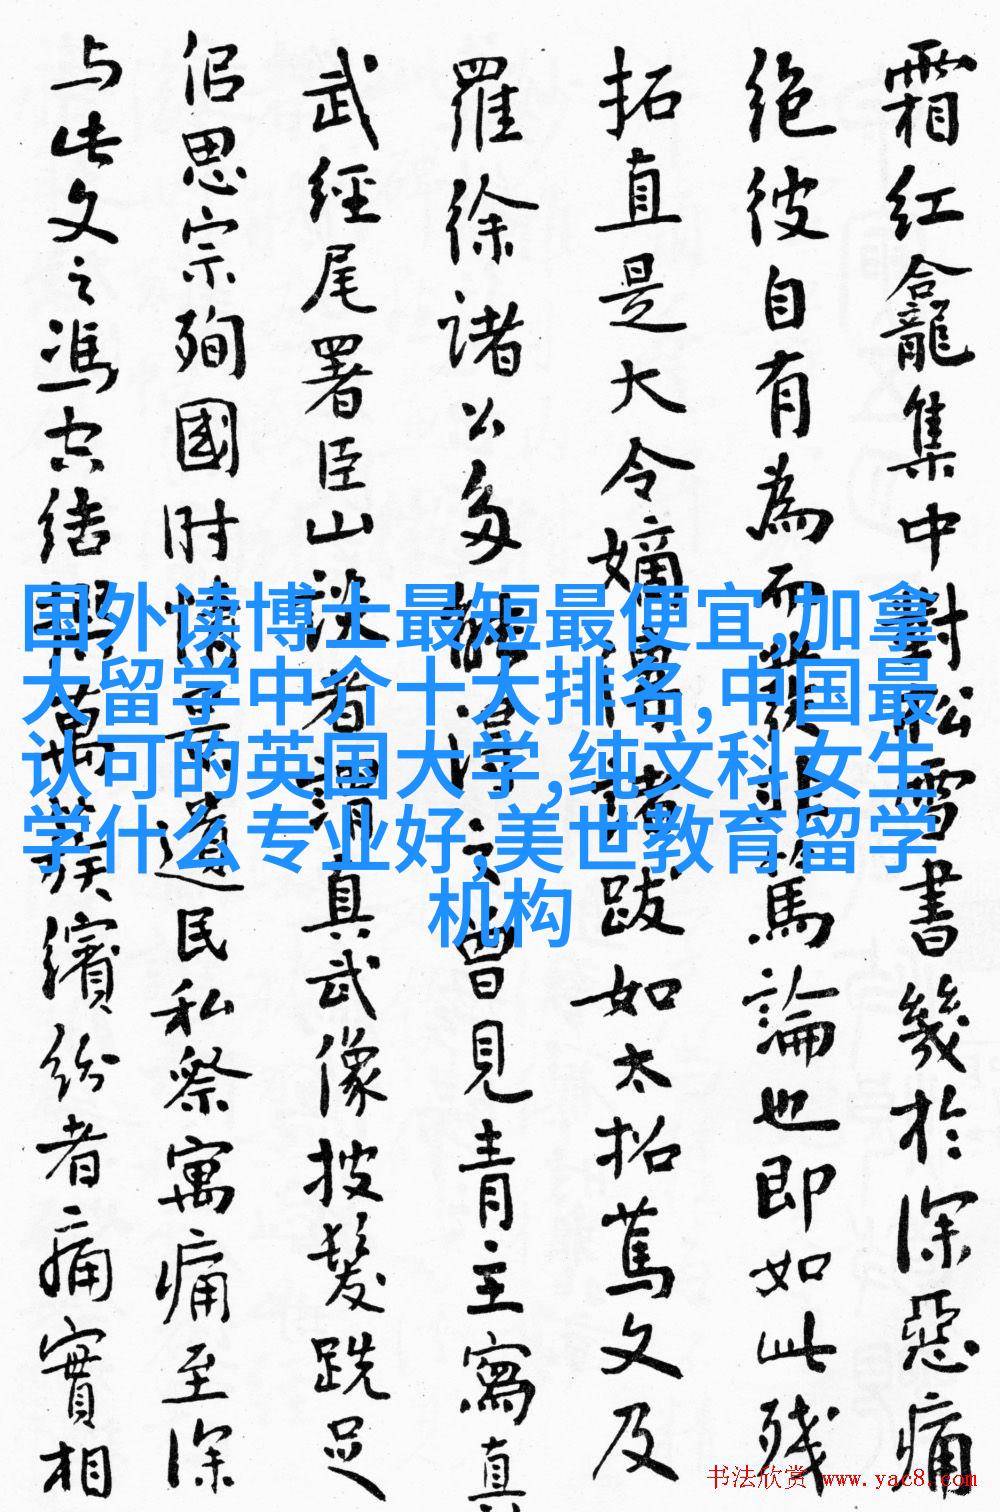 霜红龕集中對松雪書幾於深惡痛
绝彼自有為而發非篤論也即如此残
拓直是大令嫡諸跋如太文及
羅徐諸公多之曾見青主寫真
武經尾署臣山談者謂真武像披髮跣足
侣思宗殉國时遺民私察寓痛至深
与此文之馮萬族繽紛者痛實相
国外读博士最短最便宜,加拿
大留学中介十大排名,中国最
认可的英国大学,纯文科女生
学什么专业好,美世教育留学
机构
书法欣赏 www.yac8.com